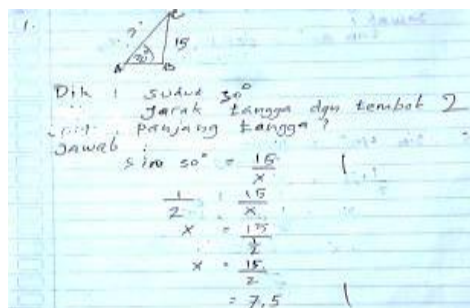 1.
C
? 15
30°
A B
Dik : sudut 30°
jarak tangga dgn tembok 2
panjang tangga ?
Jawab :
sin 30° = 15/x 1
1/2 : 15/x
x = 15/(1/2)
x = 15/2
= 7,5 1